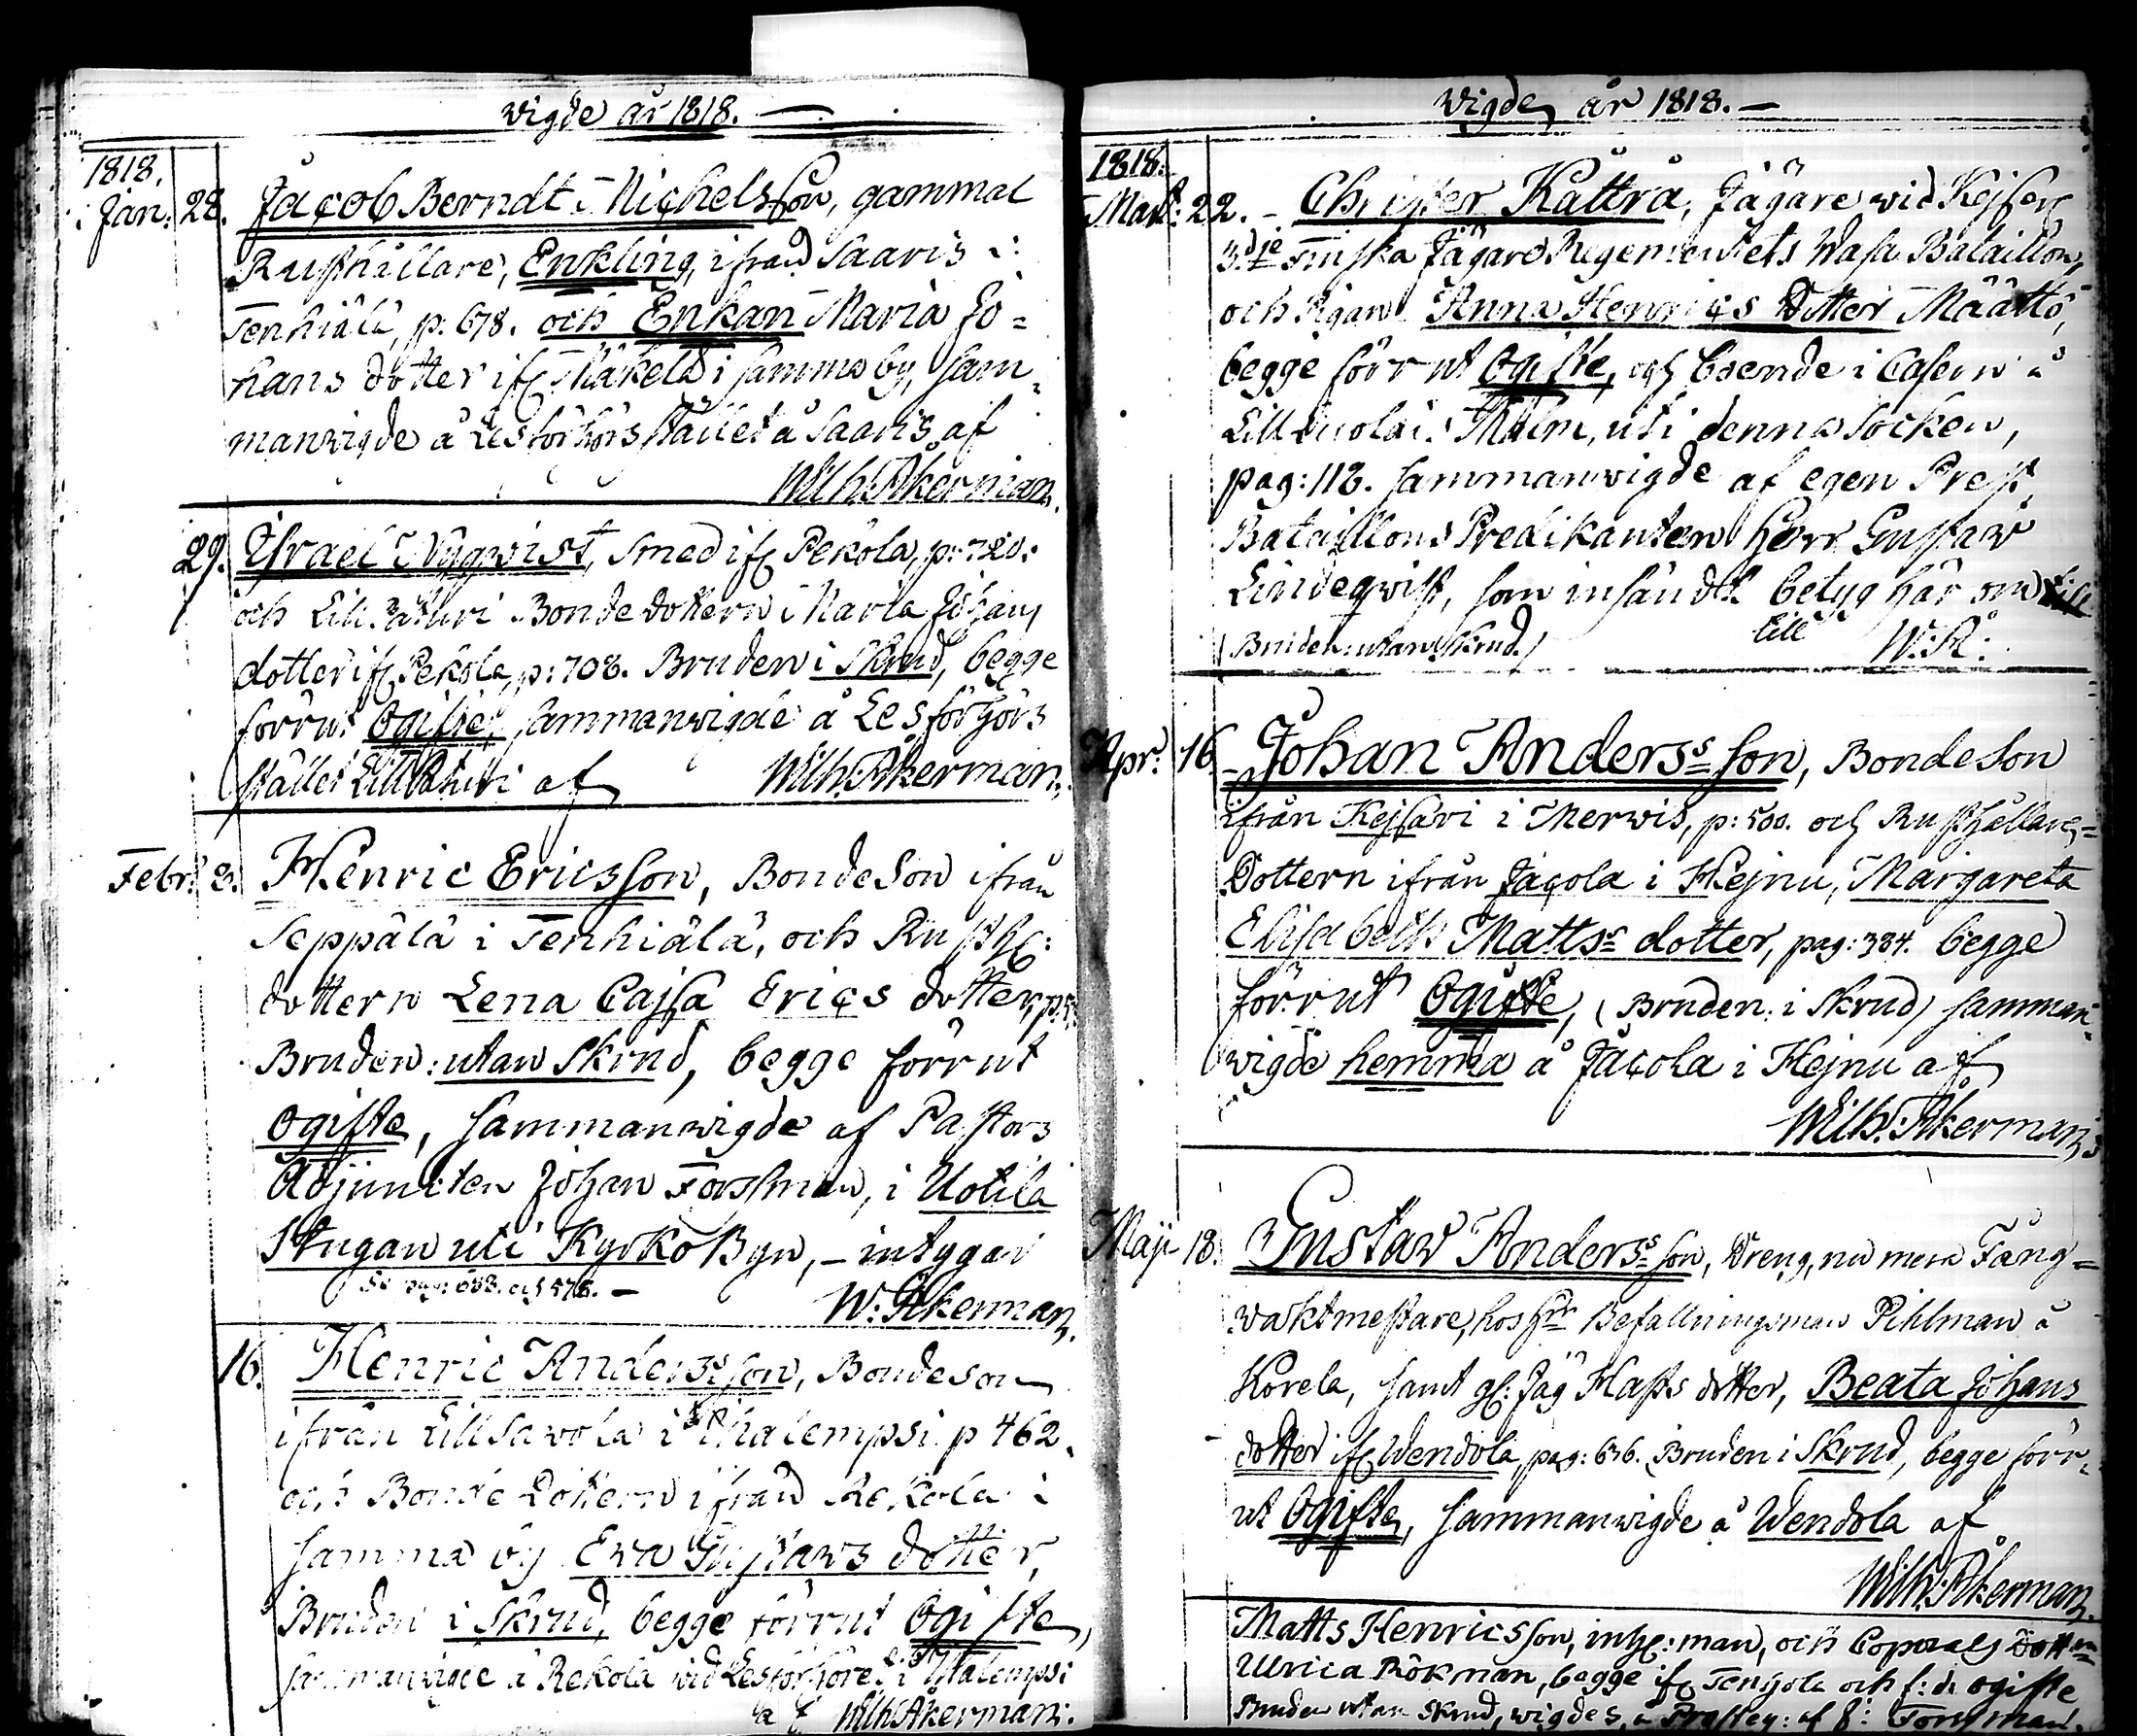 Wigde år 1818. —
1818.
Jan: 28. Jacob Berndt Michelsson, gammal
Rusthållare, Enkling, ifrån Saaris i
Tenhiälä, p: 678. och Enkan Maria Jo=
hans dotter ifr Mäkelä i samma by, sam¬
manwigde å Läsförhörs stället å Saaris, af
Wilh: Åkerman.
29. Israel Nyqwist, Smed ifr Pekola, p: 720.
och Bonde dottern Maria Johans
dotter ifr Pekola, p: 708. Bruden i Skrud, begge
förrut Ogifte, sammanwigde å Läsförhörs
stället af Wilh: Åkerman.
Febr: 3. Henric Ericsson, BondeSon ifrån
Seppälä i Tenhiälä, och Rusth:
dottern Lena Cajsa Erics dotter,
Bruden: utan Skrud, begge förrut
Ogifte, sammanwigde af Pastors
Adjuncten Johan Forssman, i Uotila
Stugan uti KyrkoByn, – intygar
Se pag: 683. och 576. —
W: Åkerman.
16. Henric Anders: son, Bondeson
ifrån LillSavola i p 462.
och Bonde Dottern ifrån Rekola i
samma by Ewa Gustaws dotter,
Bruden i Skrud, begge förrut Ogifte,
sammanwigde å Rekola vid Läsförhöret i
af Wilh: Åkerman.
Wigde år 1818. —
1818.
Mart: 22. – Christer Kattra, Jägare wid Kejserl
3dje Finska Jägare Regementets Wasa Bataillon,
och Pigan Anna Henrics Dotter Määttö,
begge förrut Ogifte, och boende i Casern å
Malm, uti denna Socken,
pag: 118. sammanwigde af egen Prest,
Bataillons Predikanten Herr Gustaw
Lindeqwist, som insändt betyg här om
till
(Bruden: utan Skrud.) W: Å:
Apr: 16. Johan Anders: son, BondeSon
ifrån Kejsari i Merwis, p: 500. och Rusthållare=
Dottern ifrån Jacola i Hejnu, Margareta
Elisabeth Matts: dotter, pag: 384. begge
förrut Ogifte, (Bruden: i Skrud) samman¬
wigde hemma å Jacola i Hejnu af
Wilh: Åkerman.
Maji 18. Gustaw Anders: son, Dreng, nu mera Fång=
waktmestare, hos Hr Befallningsman Pihlman å
Korela, samt gl: Jäg Hasts dotter, Beata Johans
dotter ifr Wendola, pag: 636. Bruden i Skrud, begge förr¬
ut Ogifte, sammanwigde å Wendola af
Wilh: Åkerman.
Matts Henricsson, inh: man, och Coporals Dottern
Ulrica Rökman, begge ifr Tenhola och f: d: ogifte
Bruden utan Skrud, wigdes å Prosteg: af J: Forssman